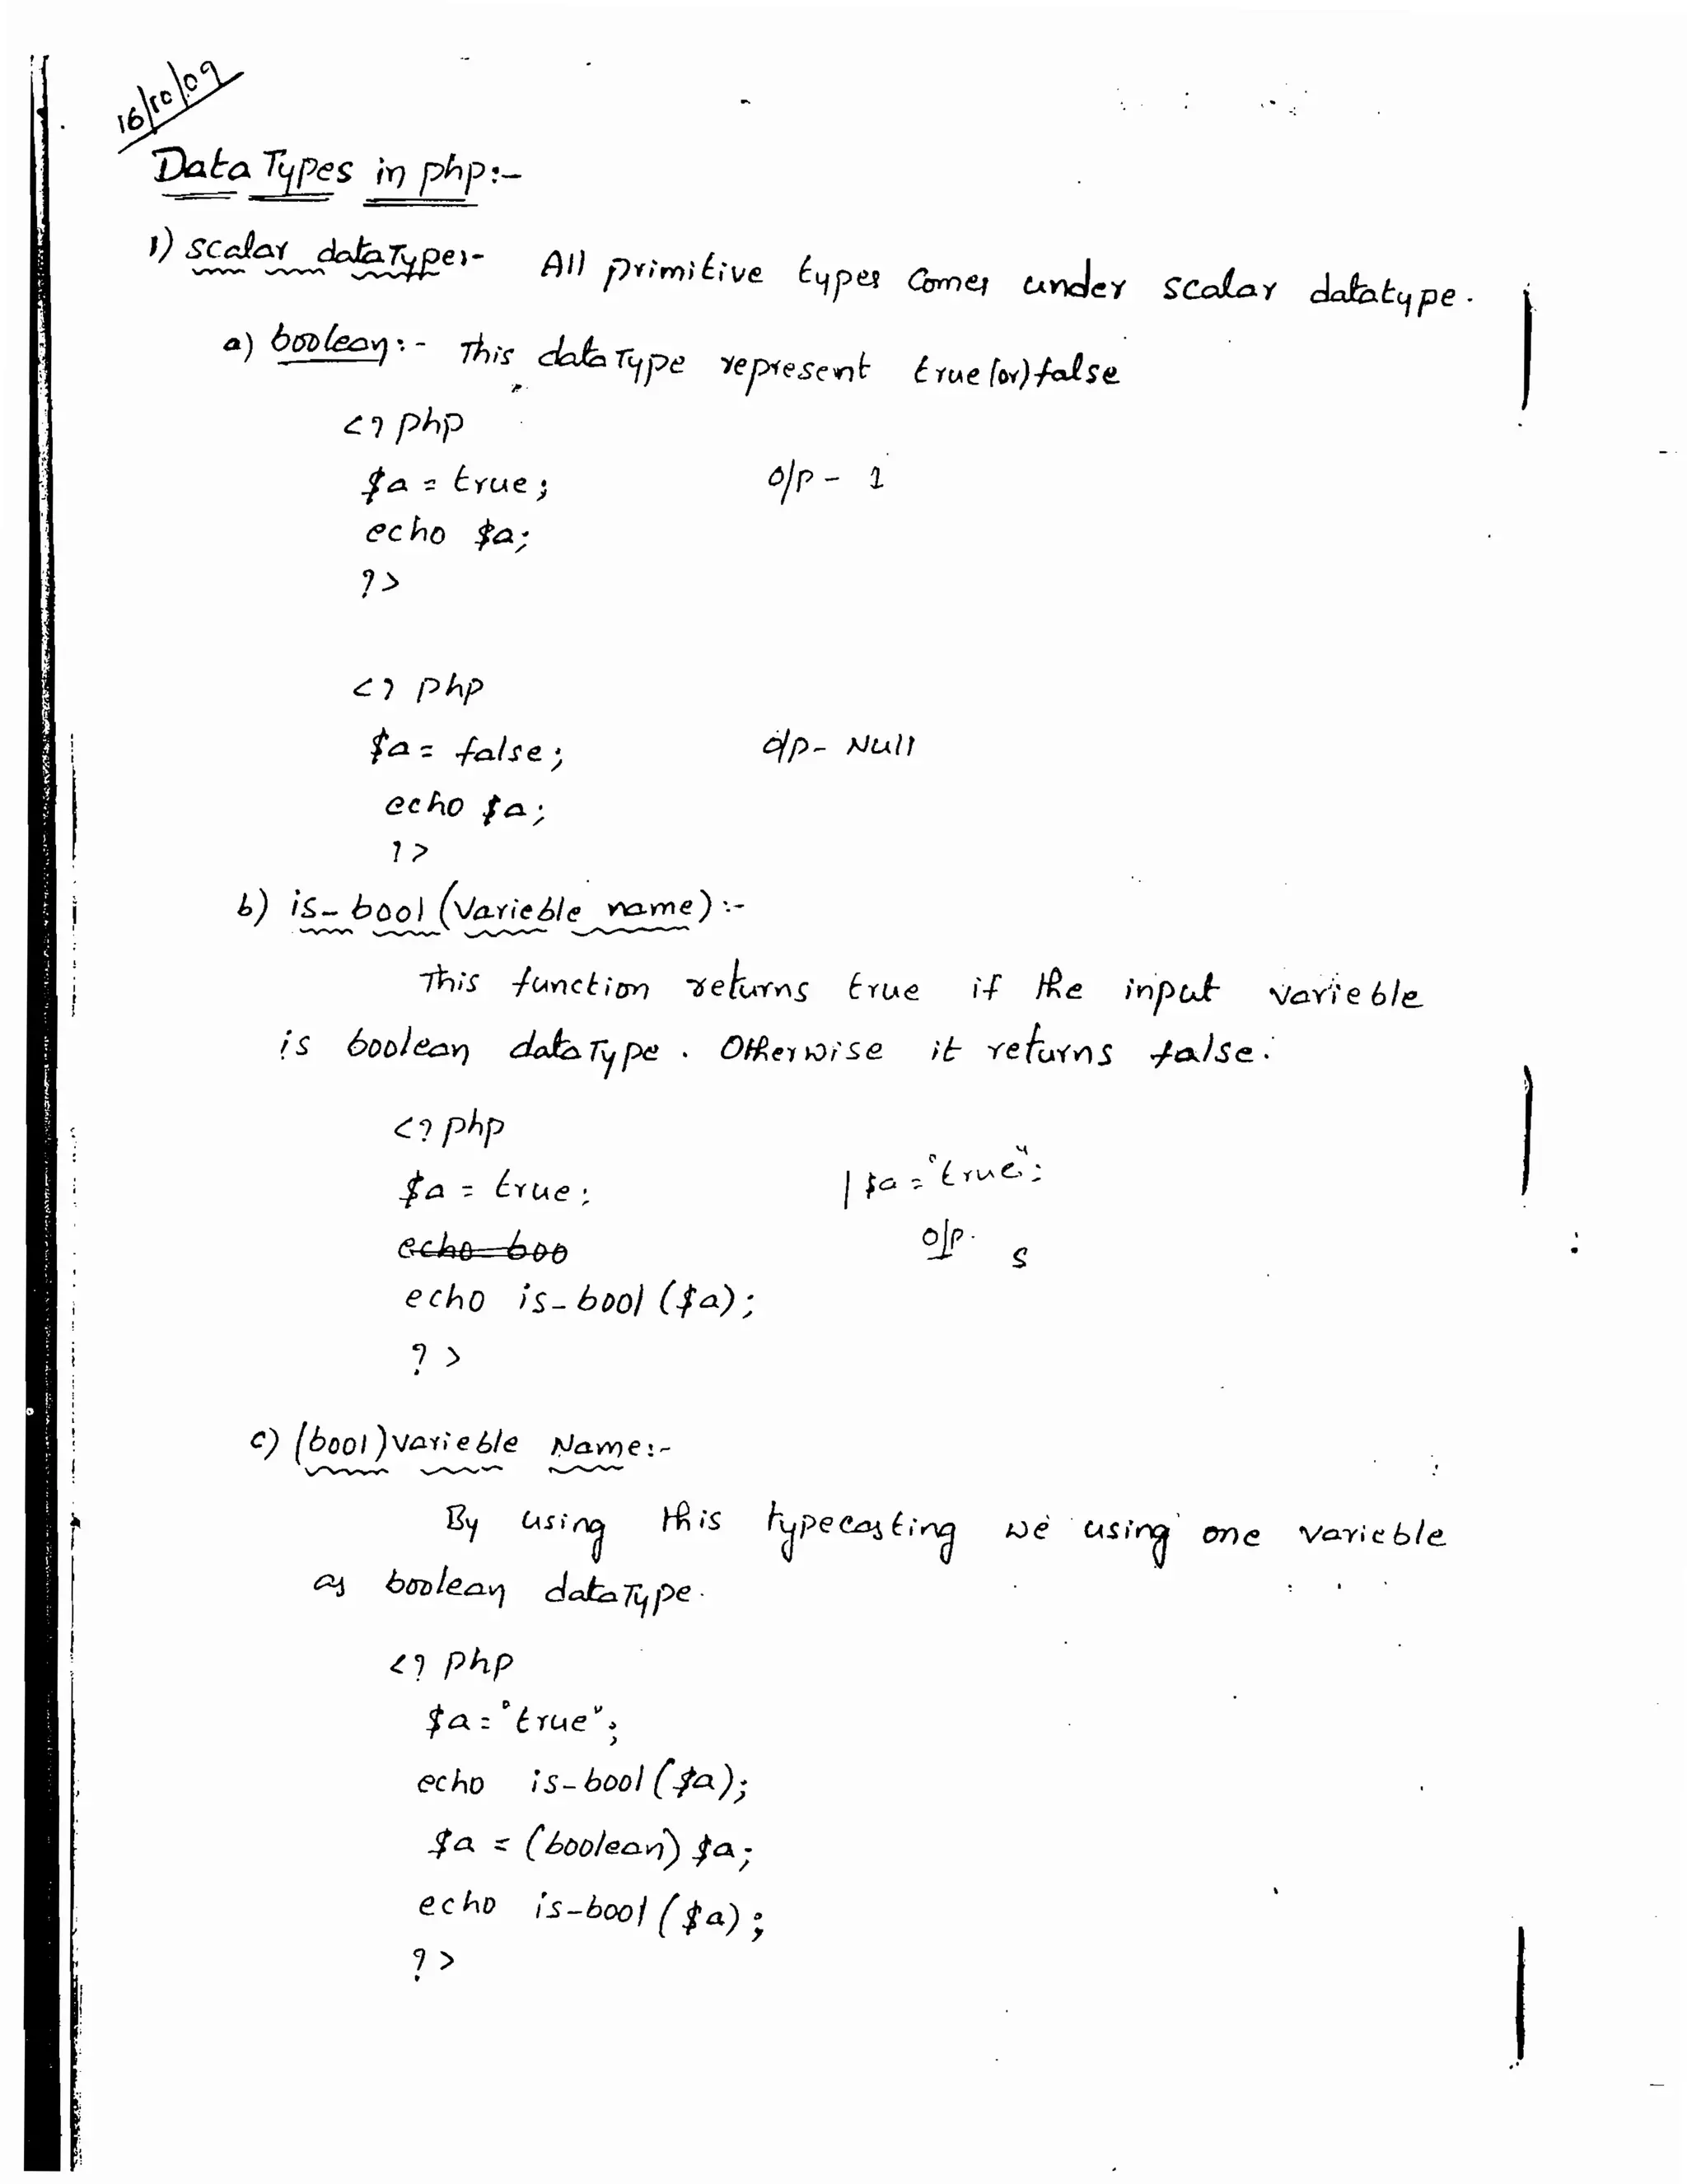 16/10/09
Data Types in php:-
1) scalar dataType:- All primitive types comes under scalar datatype.
a) boolean:- This dataType represent true (or) false
<? php
$a = true; o/p - 1
echo $a;
?>
<? php
$a = false; o/p - Null
echo $a;
?>
b) is-bool (varieble name) :-
This function returns true if the input varieble
is boolean dataType. Otherwise it returns false.
<? php
$a = true; | $a = "true";
echo boo o/p. s
echo is-bool ($a);
?>
c) (bool) varieble Name:-
By using this typecasting we using one varieble
as boolean dataType.
<? php
$a = "true";
echo is-bool ($a);
$a = (boolean) $a;
echo is-bool ($a);
?>